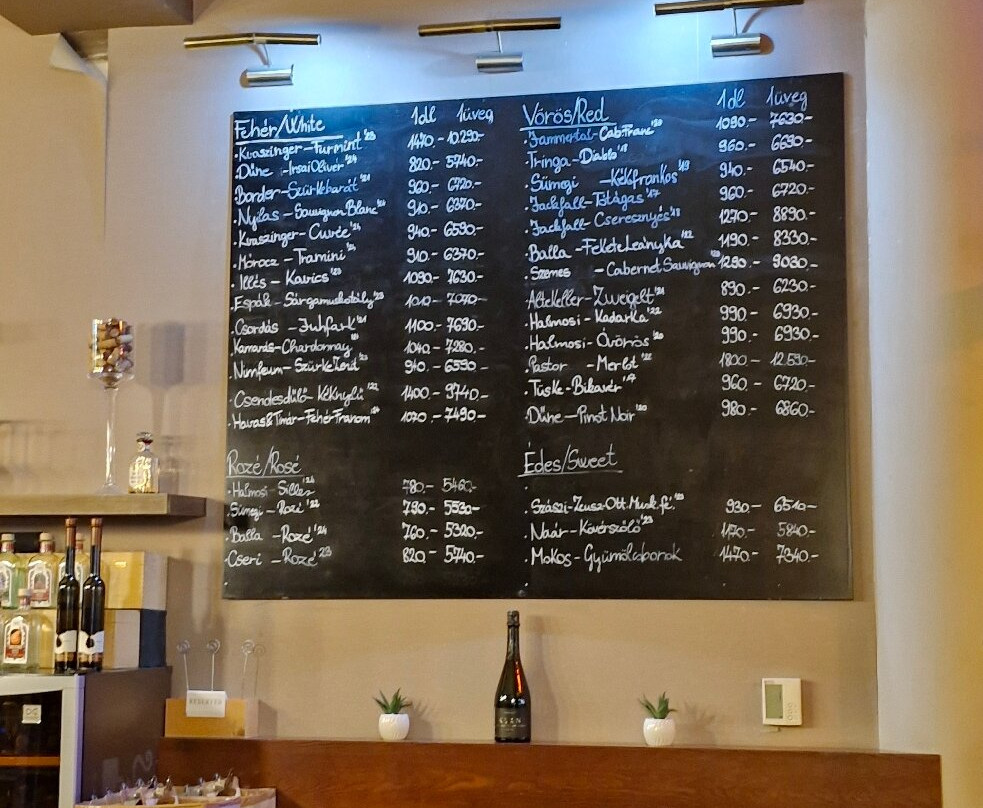 Fehér/White 1dl 1üveg
• Kvaszinger – Furmint '23 1470.- 10.290.-
• Dűne - Irsai Olivér '24 820.- 5740.-
• Border – Szürkebarát '24 960.- 6720.-
• Nyilas – Sauvignon Blanc '24 910.- 6370.-
• Kvaszinger – Cuvée '24 940.- 6590.-
• Mórocz – Tramini '24 910.- 6370.-
• Illés – Kavics '23 1090.- 7630.-
• Espák – Sárgamuskotály '23 1010.- 7070.-
• Csordás – Juhfark '21 1100.- 7690.-
• Kamarás – Chardonnay 1040.- 7280.-
• Nimfeum – Szürke Zöld '23 940.- 6590.-
• Csendesdűlő – Kéknyelű '22 1400.- 9740.-
• Havas&Timár – Fehér Franom '24 1070.- 7490.-
Rozé/Rosé
• Halmosi – Siller '24 780.- 5460.-
• Sümegi – Rozé '22 790.- 5530.-
• Balla – Rozé '24 760.- 5320.-
• Cseri – Rozé '23 820.- 5740.-
Vörös/Red 1dl 1üveg
• Jammertal – Cab. Franc '20 1090.- 7630.-
• Tringa – Diabló '18 960.- 6690.-
• Sümegi – Kékfrankos '19 940.- 6540.-
• Jackfall – Bőágas '17 960.- 6720.-
• Jackfall – Cseresznyés '18 1270.- 8890.-
• Balla – Fekete Leányka '22 1190.- 8330.-
• Szemes – Cabernet Sauvignon '20 1290.- 9030.-
• Altekeller – Zweigelt '21 890.- 6230.-
• Halmosi – Kadarka '22 990.- 6930.-
• Halmosi – Óvörös '20 990.- 6930.-
• Pastor – Merlot '21 1800.- 12.590.-
• Tüske – Bikavér '17 960.- 6720.-
• Dűne – Pinot Noir '20 980.- 6860.-
Édes/Sweet
• Szászi – Zeusz-Ott. Musk. fé. '23 930.- 6510.-
• Naár – Kövérszőlő '23 1170.- 5840.-
• Mokos – Gyümölcsborok 1470.- 7340.-
RESERVED